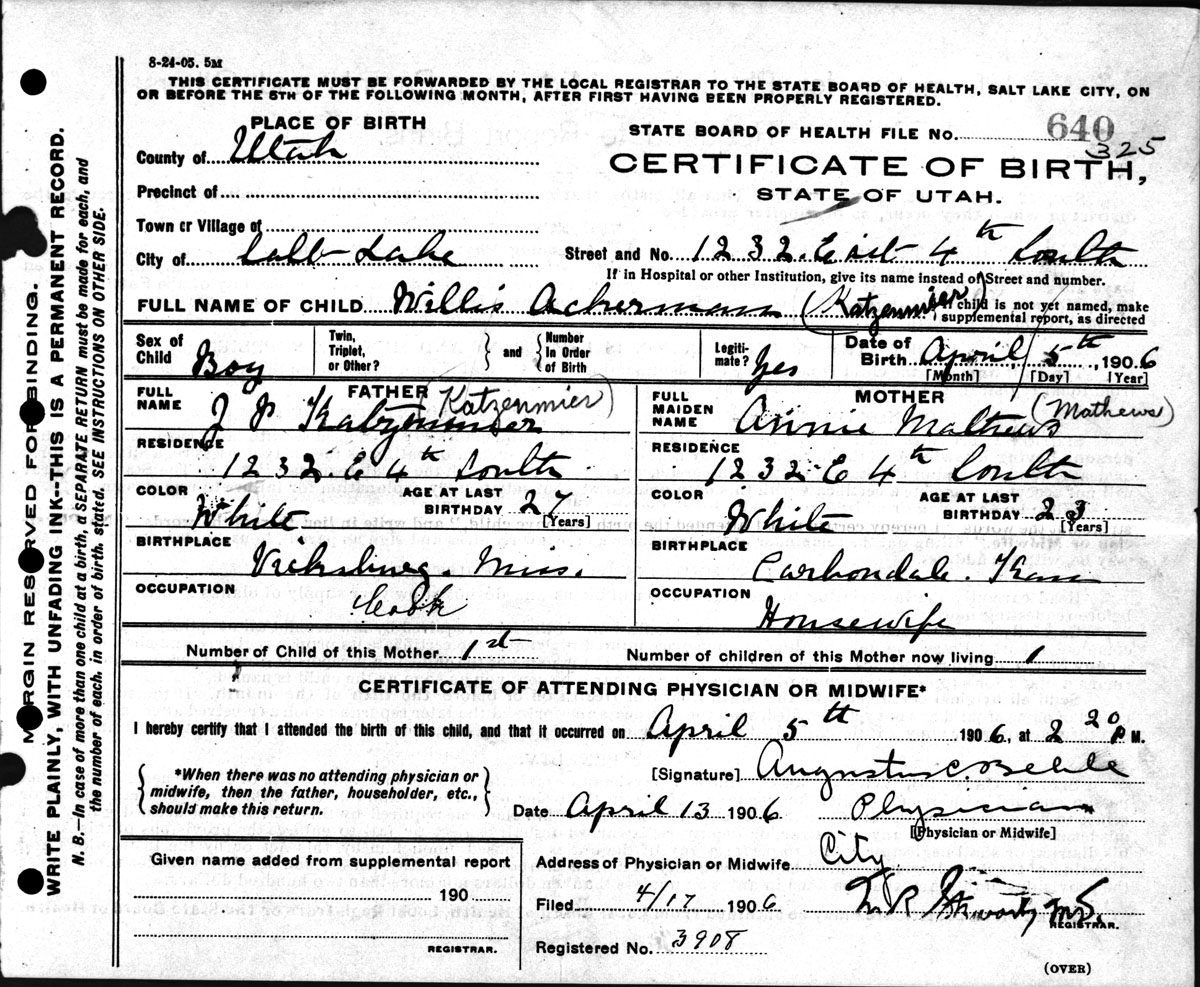 8-24-05. 5M
THIS CERTIFICATE MUST BE FORWARDED BY THE LOCAL REGISTRAR TO THE STATE BOARD OF HEALTH, SALT LAKE CITY, ON
OR BEFORE THE 5TH OF THE FOLLOWING MONTH, AFTER FIRST HAVING BEEN PROPERLY REGISTERED.
PLACE OF BIRTH
STATE BOARD OF HEALTH FILE No. 640
325
County of Utah
CERTIFICATE OF BIRTH,
Precinct of
STATE OF UTAH.
Town or Village of
City of Lake Street and No. 1232 E 4th South
If in Hospital or other Institution, give its name instead of Street and number.
FULL NAME OF CHILD Willis Ackermann (Katzenmier) If child is not yet named, make
supplemental report, as directed
Sex of Child Boy Twin, Triplet, or Other? and Number In Order of Birth Legiti-mate? Yes Date of Birth April 5th, 1906
[Month] [Day] [Year]
FULL NAME FATHER J P Katzenmier (Katzenmier)
RESIDENCE 1232 E 4th South
COLOR White AGE AT LAST BIRTHDAY 27 [Years]
BIRTHPLACE Vicksburg. Miss.
OCCUPATION Cook
FULL MAIDEN NAME MOTHER Annie Mathews (Mathews)
RESIDENCE 1232 E 4th South
COLOR White AGE AT LAST BIRTHDAY [Years]
BIRTHPLACE Carbondale. Kan
OCCUPATION Housewife
Number of Child of this Mother 1st Number of children of this Mother now living 1
CERTIFICATE OF ATTENDING PHYSICIAN OR MIDWIFE*
I hereby certify that I attended the birth of this child, and that it occurred on April 5th 1906, at 2 20 P M.
*When there was no attending physician or
midwife, then the father, householder, etc.,
should make this return.
[Signature] Augustus C. Behle
Date April 13 1906 Physician
[Physician or Midwife]
Given name added from supplemental report
190
REGISTRAR.
Address of Physician or Midwife City
Filed 4/17 1906
REGISTRAR.
Registered No. 3908
(OVER)
MARGIN RESERVED FOR BINDING.
WRITE PLAINLY, WITH UNFADING INK--THIS IS A PERMANENT RECORD.
N. B.—In case of more than one child at a birth, a SEPARATE RETURN must be made for each, and
the number of each, in order of birth, stated. SEE INSTRUCTIONS ON OTHER SIDE.